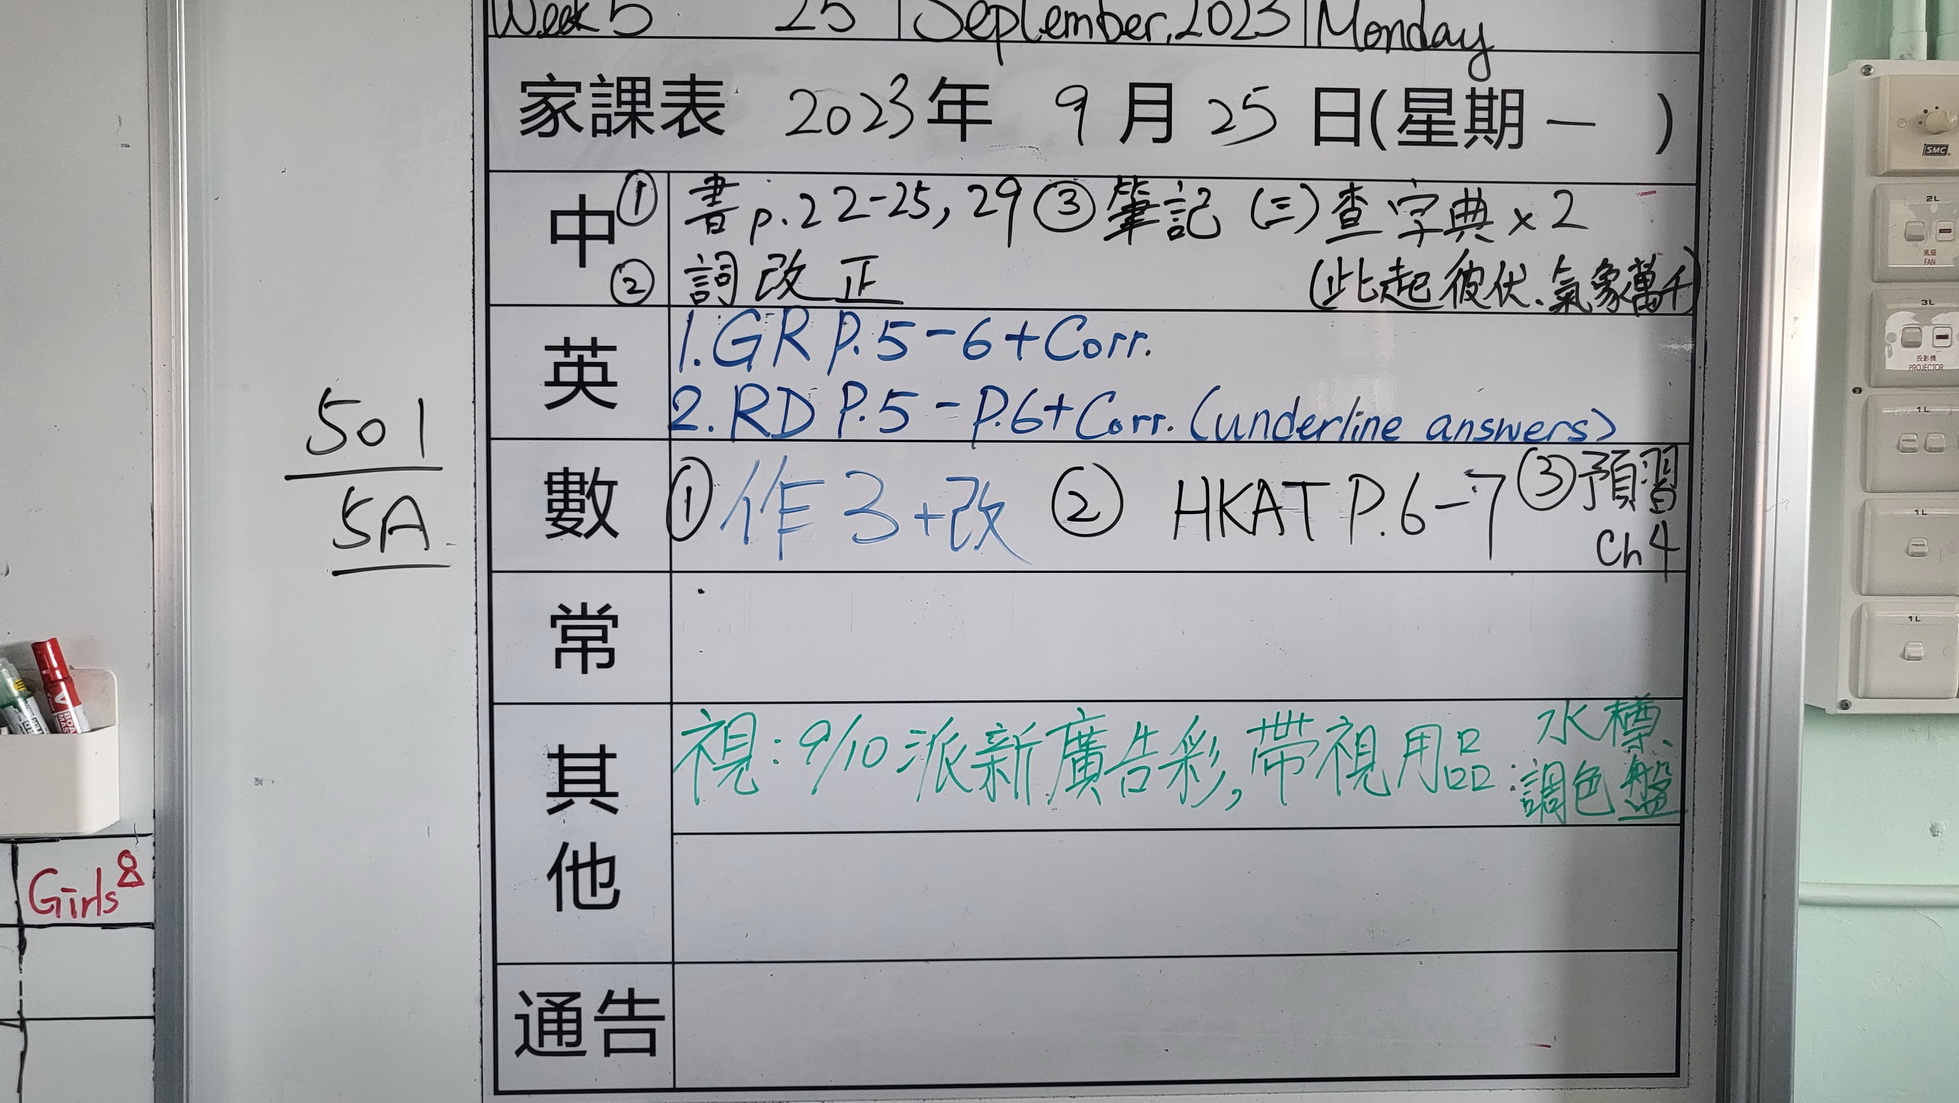 Week 5 25 September, 2023 Monday
家課表 2023年 9月25日(星期一 )
中 ① 書 p.22-25, 29 ③ 筆記 (三) 查字典 x 2
② 詞改正 (此起彼伏、氣象萬千)
英 1. GR P.5-6 + Corr.
2. RD P.5 - P.6 + Corr. (underline answers)
數 ① 作3+改 ② HKAT P.6-7 ③ 預習
Ch 4
常
其他 視: 9/10 派新廣告彩, 帶視用品: 水樽、
調色盤
通告
501
5A
Girls 8
SMC
2L
風扇
FAN
3L
投影機
PROJECTOR
1L
1L
1L